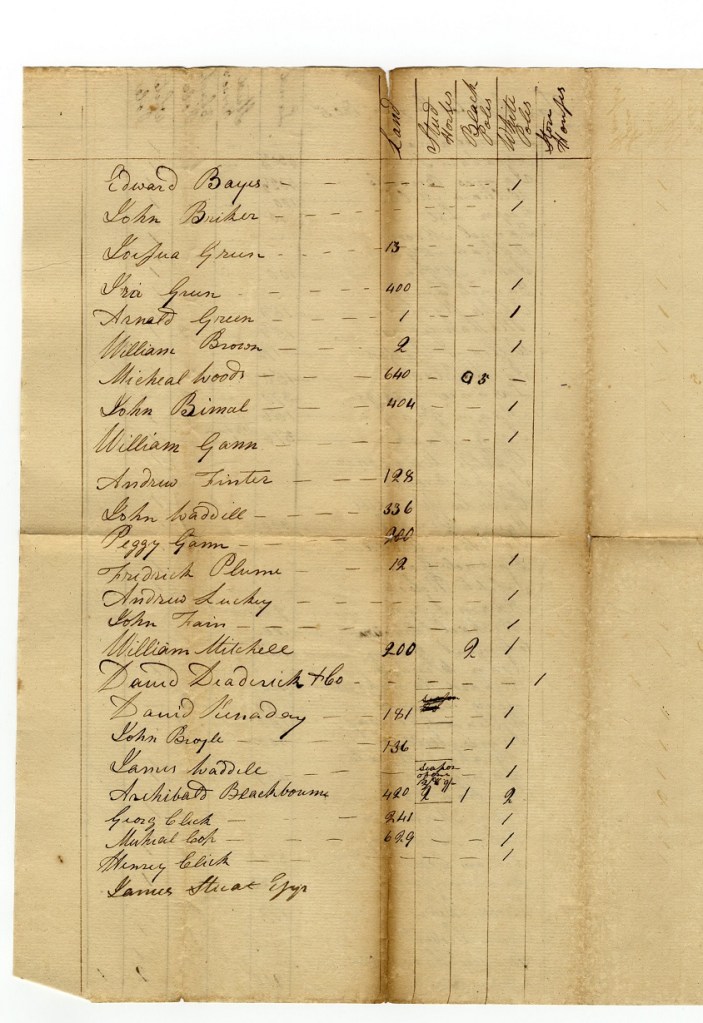 Land Stud Horses Black Poles White Poles Store Houses
Edward Bayes - - - - - - - 1
John Briker - - - - - - - 1
Joshua Green - - - 13 -
Ira Green - - - 400 - - 1
Arnald Green - - - 1 - - 1
William Brown - - - 2 - - 1
Micheal Woods - - - 640 - 5 -
John Bimal - - - 404 - - 1
William Gann - - - - - - 1
Andrew Finter - - - 128
John Waddill - - - 336
Peggy Gann - - - 200
Fredrick Plume - - - 12 - - 1
Andrew Luckey - - - - - - 1
John Fain - - - - - - 1
William Mitchell 200 2 1
David Deaderick & Co - - - - - 1
David Kenaday - - 181 - 1
John Broyle - - - 136 - - 1
James Waddill - - - - season - 1
Archibald Blackbourne 420 2 1 2
Georg Click - - - 241 - - 1
Micheal Cop - - - 629 - - 1
Henrey Click - - - - - - 1
James Stuat Esqr